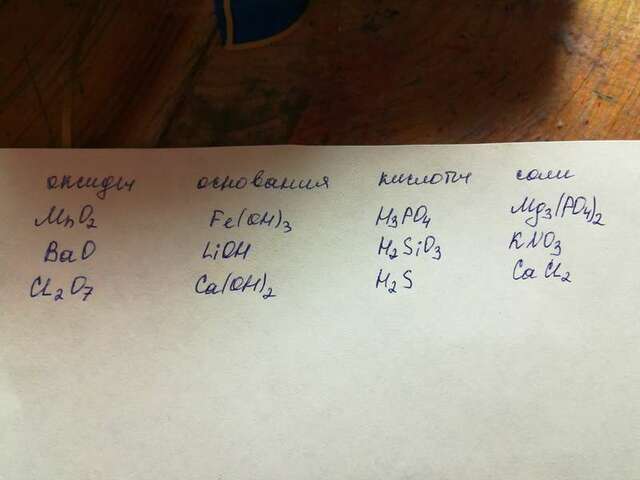 оксиды основания кислоты соли
MnO2 Fe(OH)3 H3PO4 Mg3(PO4)2
BaO LiOH H2SiO3 KNO3
Cl2O7 Ca(OH)2 H2S CaCl2